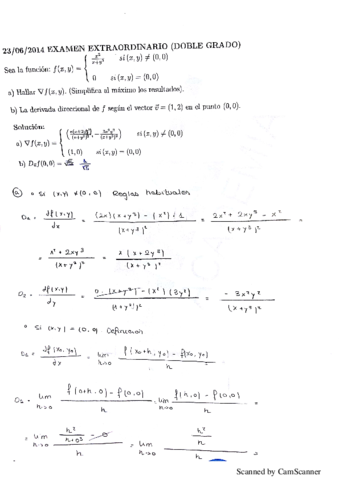 23/06/2014 EXAMEN EXTRAORDINARIO (DOBLE GRADO)
Sea la función: f(x,y) = { x²/(x+y³) si (x,y) ≠ (0,0)
0 si (x,y) = (0,0)
a) Hallar ∇f(x,y). (Simplifica al máximo los resultados).
b) La derivada direccional de f según el vector v̄ = (1,2) en el punto (0,0).
Solución:
a) ∇f(x,y) = { si (x,y) ≠ (0,0)
(1,0) si (x,y) = (0,0)
b) Dᵥf(0,0) = 1/√5
(a) • Si (x,y) ≠ (0,0) Reglas habituales
D₁ = df(x,y)/dx = ((2x)(x+y³) - (x²)·1)/(x+y³)² = (2x² + 2xy³ - x²)/(x+y³)² =
= (x² + 2xy³)/(x+y³)² = x(x+2y³)/(x+y³)²
D₂ = df(x,y)/dy = (0·(x+y³) - (x²)(3y²))/(x+y³)² = -3x²y²/(x+y³)²
• Si (x,y) = (0,0) Definición
df(x₀,y₀)/dx = lim h→0 (f(x₀+h, y₀) - f(x₀,y₀))/h
lim h→0 (f(0+h,0) - f(0,0))/h = lim h→0 (f(h,0) - f(0,0))/h =
= lim h→0 (h²/(h+0³) - 0)/h = lim h→0 (h²/h)/h =
Scanned by CamScanner